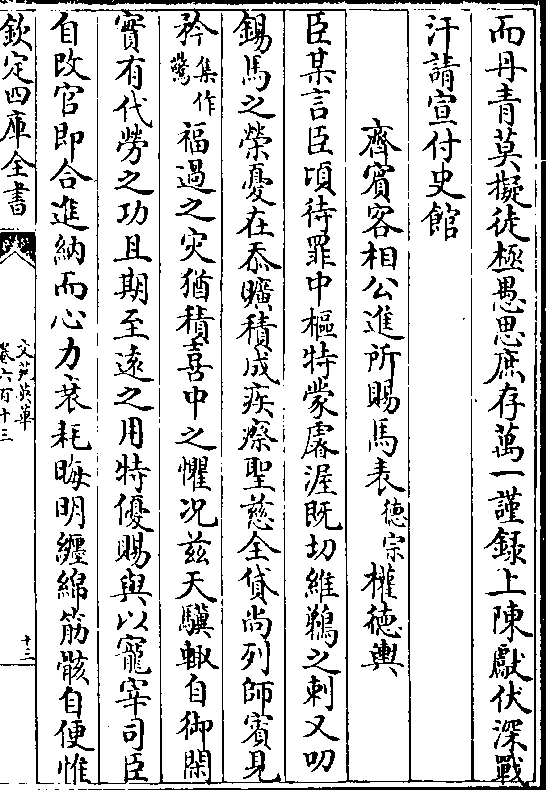 而丹青莫擬徒極愚思庶存萬一謹録上陳獻伏深戰
汗請宣付史館
齊賓客相公進所賜馬表德宗權德輿
臣某言臣頃待罪中樞特蒙睿渥既切維鵜之刺又叨
錫馬之榮憂在忝曠積成疾瘵聖慈全貸尚列師賓見
矜集作驚福過之灾猶積喜中之懼况兹天驥輟自御閑
實有代勞之功且期至逺之用特優賜與以寵宰司臣
自改官即合進納而心力衰耗晦明纒綿筋骸自便惟
欽定四庫全書
文苑英華
卷六百十三
十三